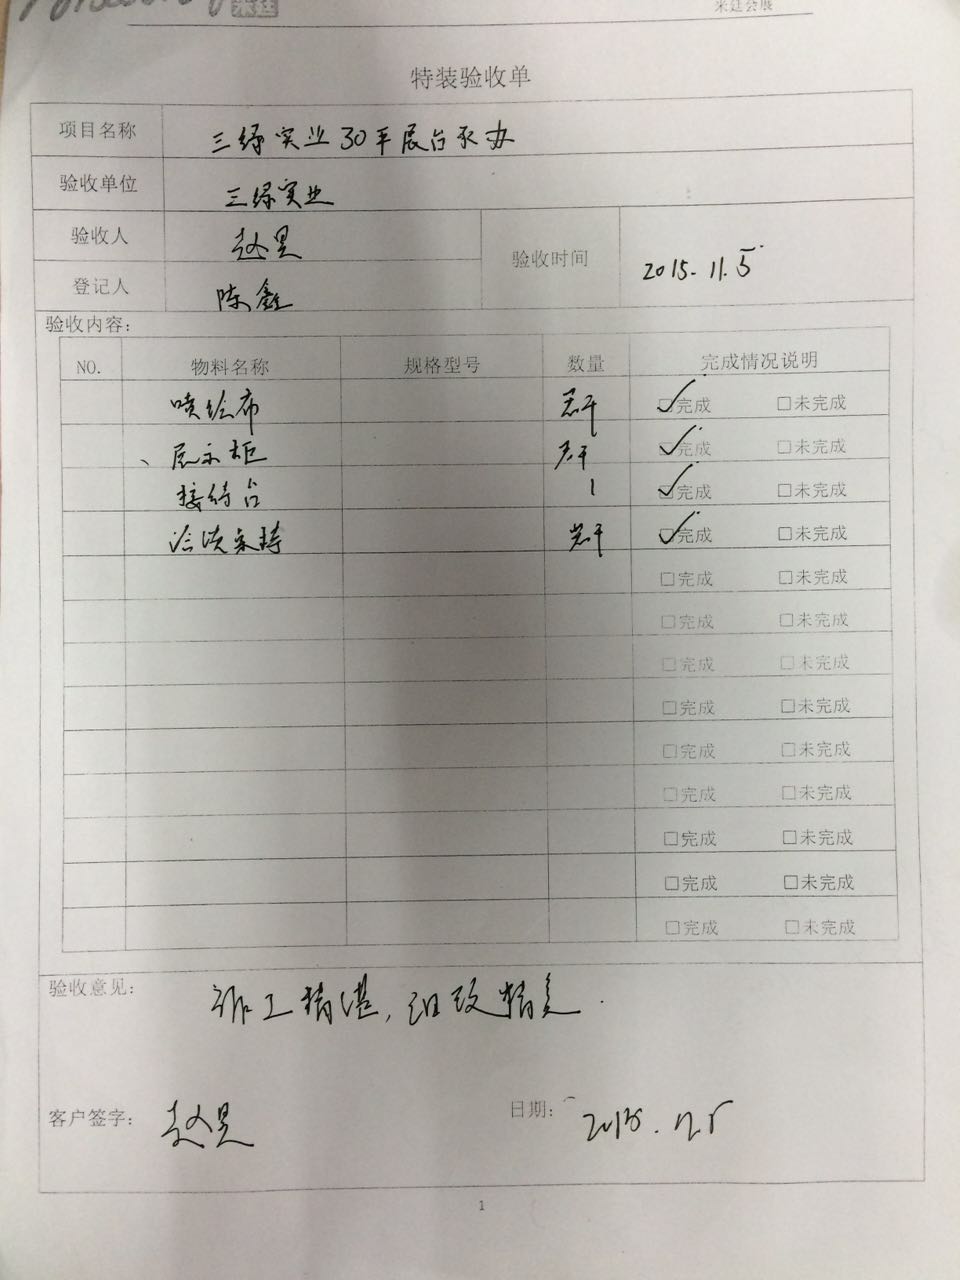 米廷会展
特装验收单
项目名称 三绿实业30平展台承办
验收单位 三绿实业
验收人 赵昊 验收时间 2015.11.5
登记人 陈鑫
验收内容:
NO. 物料名称 规格型号 数量 完成情况说明
喷绘布 若干 ☑完成 □未完成
展示柜 若干 ☑完成 □未完成
接待台 1 ☑完成 □未完成
洽谈桌椅 若干 ☑完成 □未完成
□完成 □未完成
□完成 □未完成
□完成 □未完成
□完成 □未完成
□完成 □未完成
□完成 □未完成
□完成 □未完成
□完成 □未完成
□完成 □未完成
验收意见: 作工精湛,细致精美.
客户签字: 赵昊 日期: 2015.11.5
1